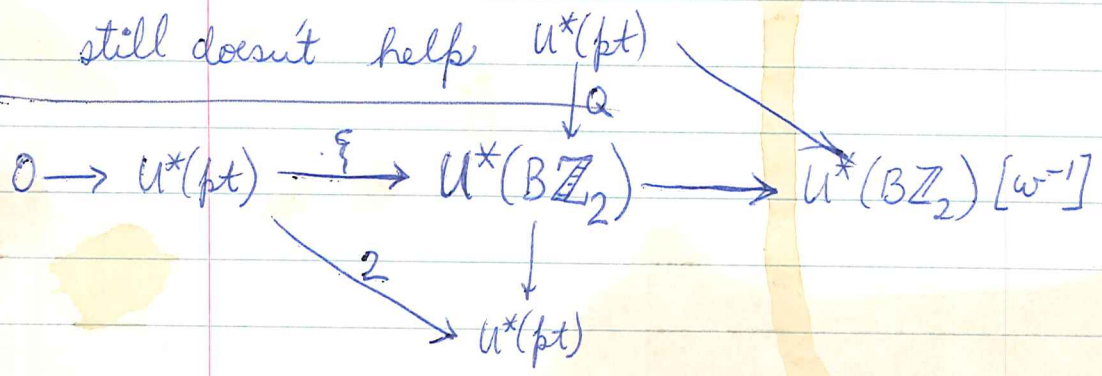 still doesn't help U*(pt)
Q
0 → U*(pt) —·ξ→ U*(Bℤ₂) → U*(Bℤ₂)[ω⁻¹]
2
U*(pt)